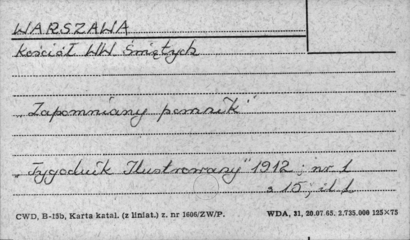 WARSZAWA
Kościół WW. Świętych
„Zapomniany pomnik"
„Tygodnik Ilustrowany" 1912; nr. 1
s 15; il. 1
CWD, B-15b, Karta katal. (z liniat.) z. nr 1606/ZW/P. WDA, 31, 20.07.65. 2.735.000 125×75